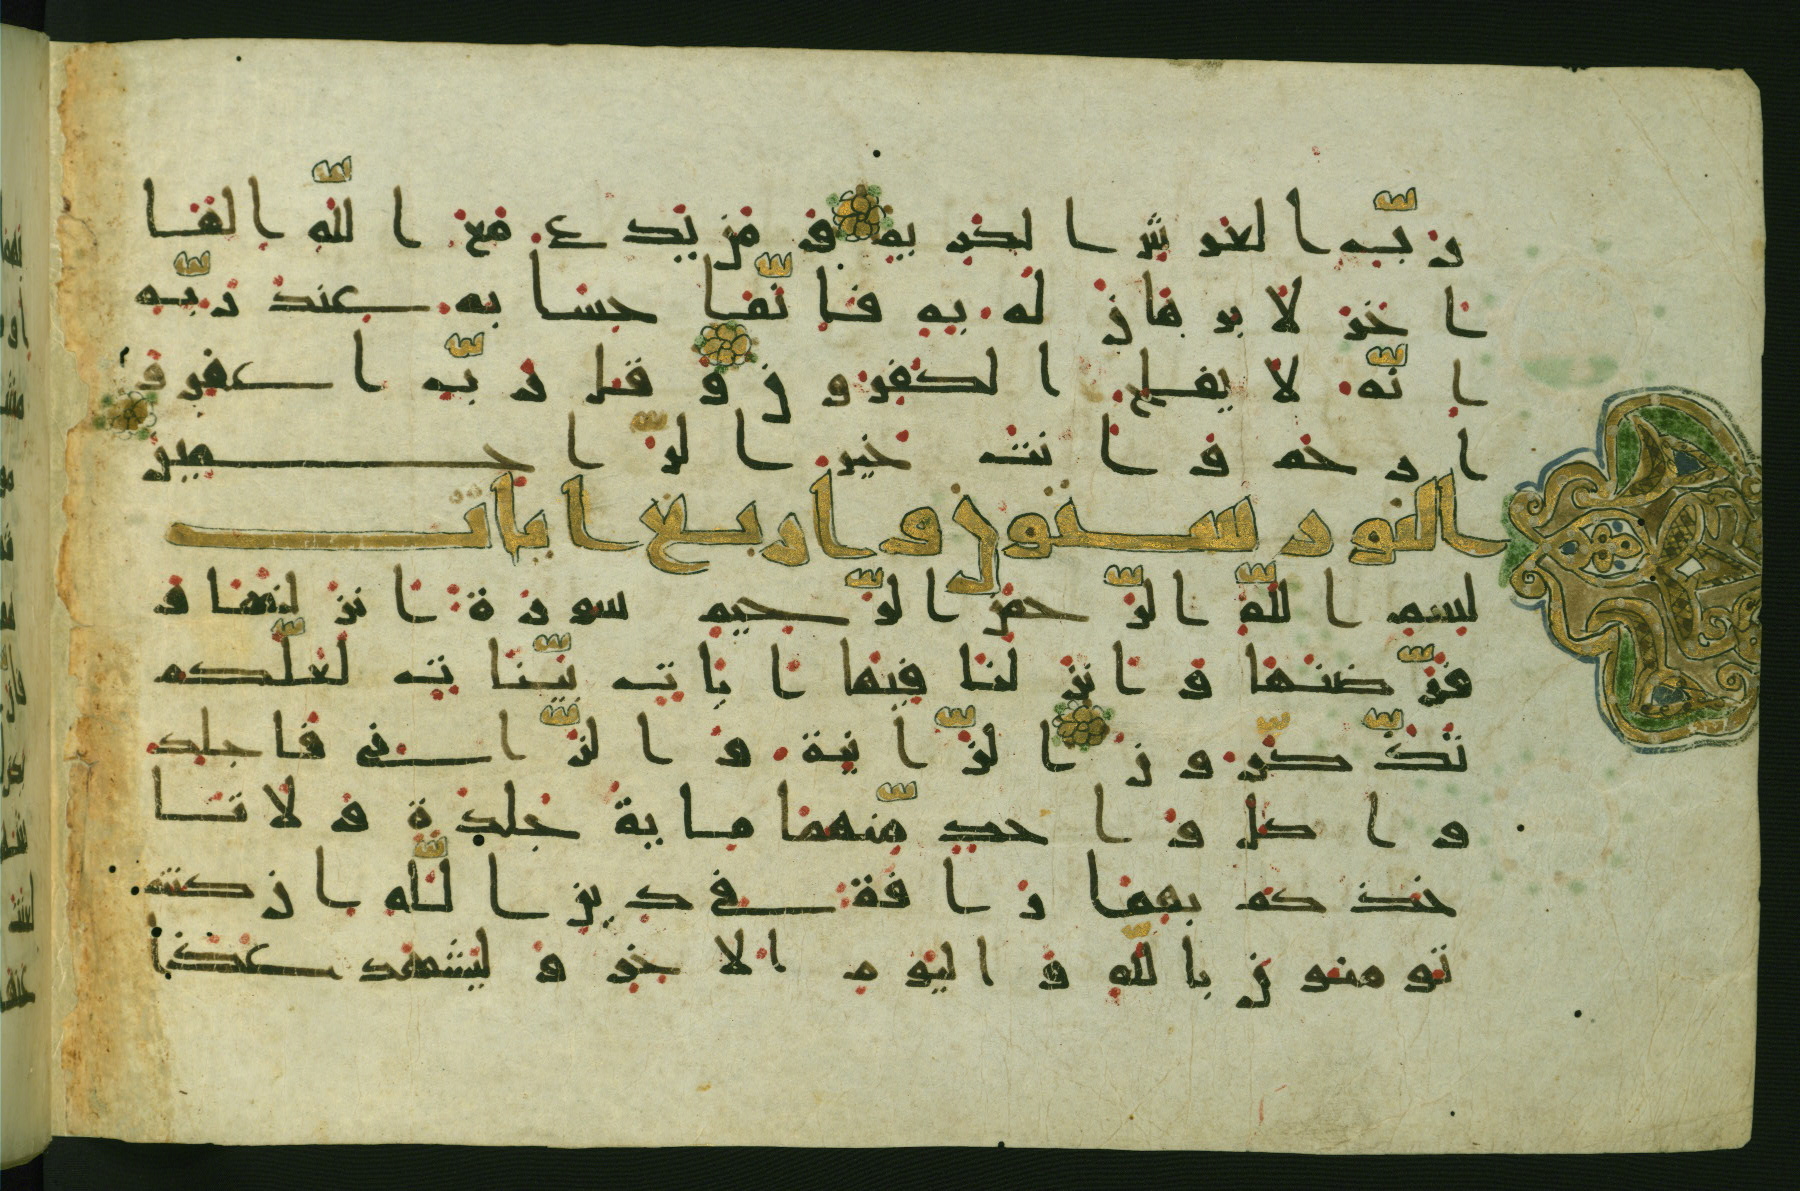 ربّ العرش الكريم ومن يدع مع اللّه الها
اخر لا برهان له به فانّما حسابه عند ربّه
انّه لا يفلح الكفرون وقل ربّ اغفر و
ارحم وانت خير الرّاحمين
النور ستون واربع ايات
بسم اللّه الرّحمن الرّحيم سورة انزلنها و
فرّضنها وانزلنا فيها ايات بيّنات لعلّكم
تذّكّرون الزّانية والزّاني فاجلد
وا كل واحد مّنهما ماية جلدة ولا تا
خذكم بهما رافة في دين اللّه ان كنتم
تومنون باللّه واليوم الاخر وليشهد عذا